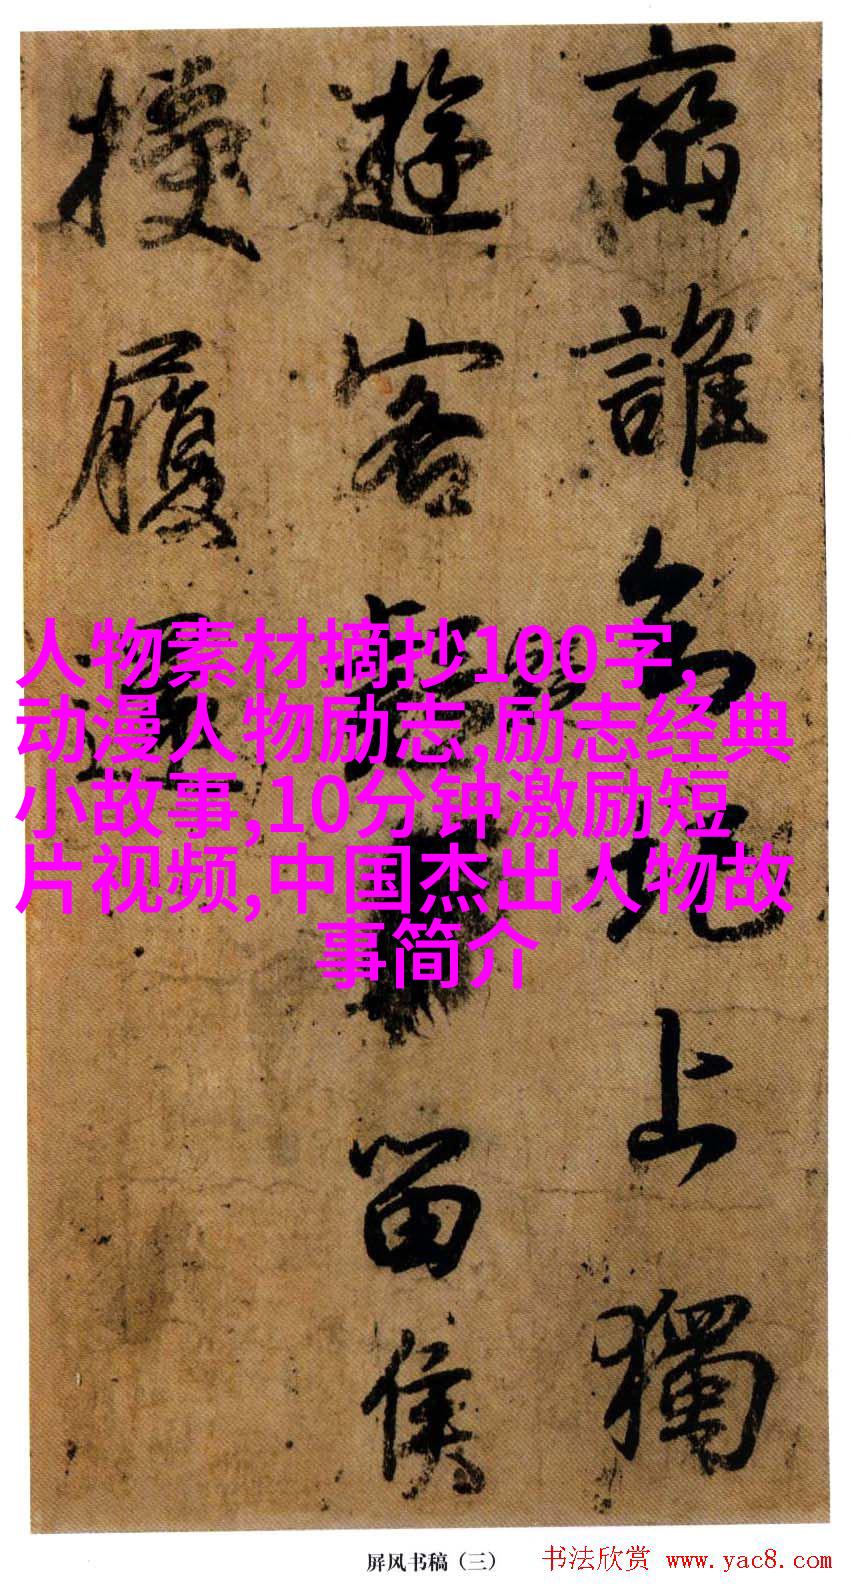 誰 地上獨
遊客 留侯
履
人物素材摘抄100字,
动漫人物励志,励志经典
小故事,10分钟激励短
片视频,中国杰出人物故
事简介
屏风书稿（三）
书法欣赏 www.yac8.com